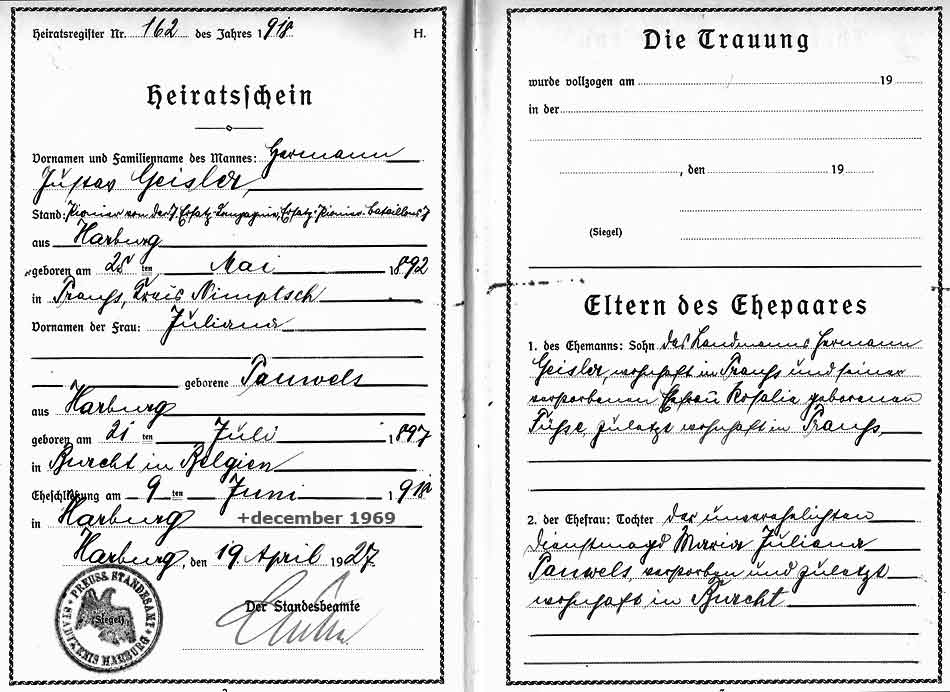 Heiratsregister Nr. 162 des Jahres 1918. H.
Heiratsschein
Vornamen und Familienname des Mannes: Hermann
Gustav Geisler
Stand: Pionier von der I. Ersatz-Kompagnie, Ersatz-Pionier-Bataillons 9
aus Harburg
geboren am 25 ten Mai 1892
in Kreis Nimptsch
Vornamen der Frau: Juliana
geborene Pauwels
aus Harburg
geboren am 21 ten Juli 1897
in Burcht in Belgien
Eheschließung am 9 ten Juni 1918
in Harburg +december 1969
Harburg, den 19 April 1927.
Der Standesbeamte
(Siegel)
PREUSS. STANDESAMT
HARBURG
Die Trauung
wurde vollzogen am 19
in der
, den 19
(Siegel)
Eltern des Ehepaares
1. des Ehemanns: Sohn des Landmanns Hermann
Geisler, wohnhaft in und seiner
verstorbenen Ehefrau Rosalia geborenen
zuletzt wohnhaft in
2. der Ehefrau: Tochter der unverehelichten
Dienstmagd Maria Juliana
Pauwels, verstorben und zuletzt
wohnhaft in Burcht